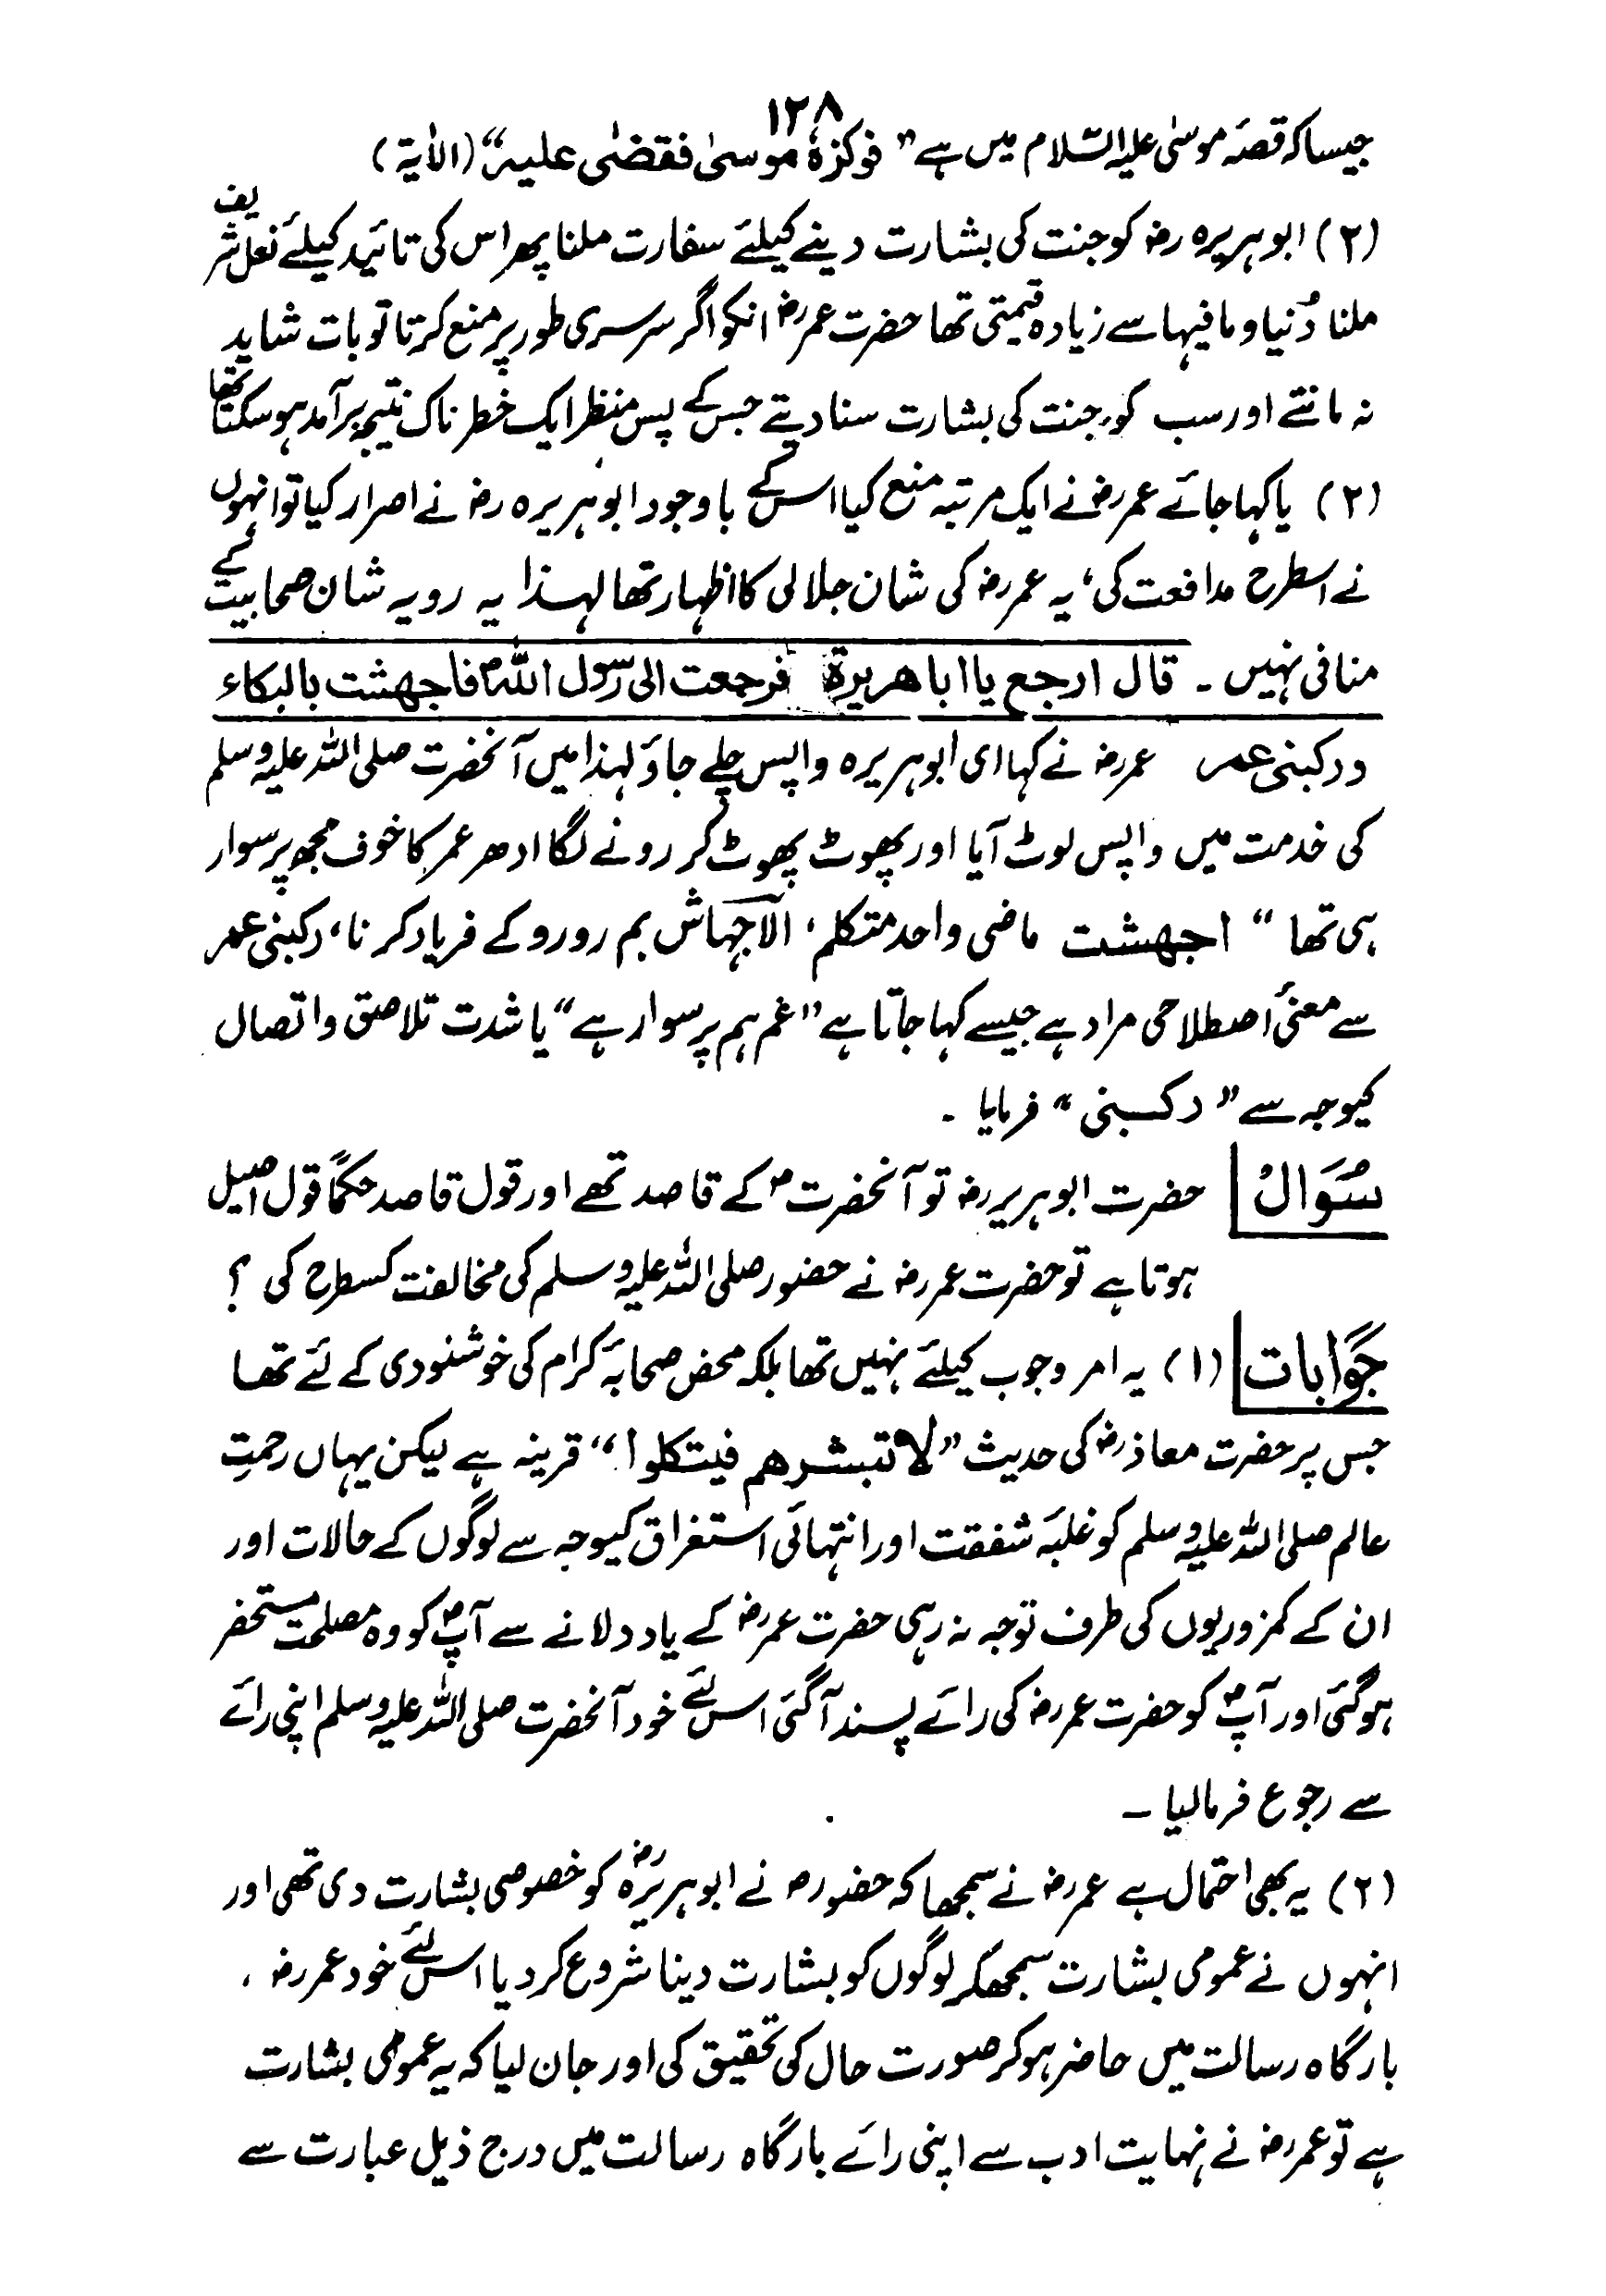 ۱۲۸
جیسا کہ قصۂ موسیٰ علیہ السّلام میں ہے " فوکزہٗ موسیٰ فقضٰی علیہ " (الاٰیۃ)
(۲) ابو ہریرہ رض کو جنت کی بشارت دینے کیلئے سفارت ملنا پھر اس کی تائید کیلئے نعل شریف
ملنا دُنیا و مافیہا سے زیادہ قیمتی تھا حضرت عمر رض انکو اگر سرسری طور پر منع کرتا تو بات شاید
نہ مانتے اور سب کو جنت کی بشارت سنا دیتے جس کے پس منظر ایک خطرناک نتیجہ برآمد ہو سکتا تھا
(۲) یا کہا جائے عمر رض نے ایک مرتبہ منع کیا اس کے باوجود ابو ہریرہ رض نے اصرار کیا تو انہوں
نے اسطرح مدافعت کی، یہ عمر رض کی شان جلالی کا اظہار تھا لہٰذا یہ رویہ شان صحابیت کے
منافی نہیں ۔ قال ارجع یا ابا ھریرۃ فرجعت الی رسول اللہ ص فاجھشت بالبکاء
ورکبنی عمر عمر رض نے کہا ای ابو ہریرہ واپس چلے جاؤ لہذا میں آنحضرت صلی اللہ علیہ وسلم
کی خدمت میں واپس لوٹ آیا اور پھوٹ پھوٹ کر رونے لگا ادھر عمر کا خوف مجھ پر سوار
ہی تھا " اجھشت ماضی واحد متکلم، الاَجہاش بم رو رو کے فریاد کرنا، رکبنی عمر
سے معنیٔ اصطلاحی مراد ہے جیسے کہا جاتا ہے "غم ہم پر سوار ہے" یا شدت تلاصق و اتصال
کیوجہ سے " رکبنی " فرمایا ۔
سُوَالْ حضرت ابو ہریرہ رض تو آنحضرت ص کے قاصد تھے اور قول قاصد حکمًا قول اصیل
ہوتا ہے تو حضرت عمر رض نے حضور صلی اللہ علیہ وسلم کی مخالفت کسطرح کی ؟
جَوَابات (۱) یہ امر وجوب کیلئے نہیں تھا بلکہ محض صحابۂ کرام کی خوشنودی کے لئے تھا
جس پر حضرت معاذ رض کی حدیث " لا تبشرھم فیتکلوا " قرینہ ہے لیکن یہاں رحمتِ
عالم صلی اللہ علیہ وسلم کو غلبۂ شفقت اور انتہائی استغراق کیوجہ سے لوگوں کے حالات اور
ان کے کمزوریوں کی طرف توجہ نہ رہی حضرت عمر رض کے یاد دلانے سے آپ ص کو وہ مصلحت مستحضر
ہو گئی اور آپ ص کو حضرت عمر رض کی رائے پسند آ گئی اس لئے خود آنحضرت صلی اللہ علیہ وسلم اپنی رائے
سے رجوع فرمالیا ۔
(۲) یہ بھی احتمال ہے عمر رض نے سمجھا کہ حضور ص نے ابو ہریرہ رض کو خصوصی بشارت دی تھی اور
انہوں نے عمومی بشارت سمجھکر لوگوں کو بشارت دینا شروع کر دیا اس لئے خود عمر رض ،
بارگاہ رسالت میں حاضر ہو کر صورت حال کی تحقیق کی اور جان لیا کہ یہ عمومی بشارت
ہے تو عمر رض نے نہایت ادب سے اپنی رائے بارگاہ رسالت میں درج ذیل عبارت سے